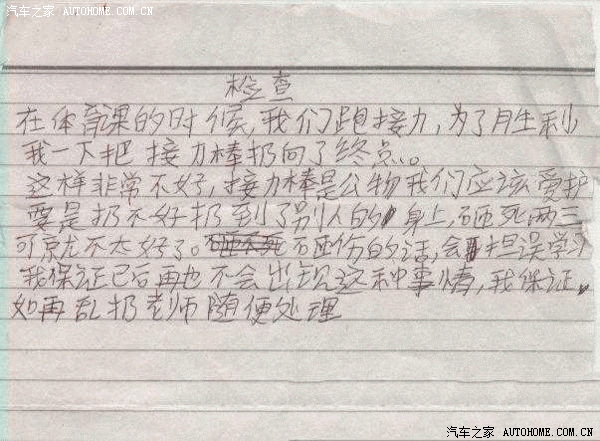 汽车之家 AUTOHOME.COM.CN
检查
在体育课的时候,我们跑接力,为了胜利
我一下把接力棒扔向了终点。。
这样非常不好,接力棒是公物我们应该爱护
要是扔不好扔到了别人的身上,砸死两三
可就不太好了。砸不死砸伤的话,会担误学习
我保证已后再也不会出现这种事情,我保证。
如再乱扔老师随便处理
汽车之家 AUTOHOME.COM.CN